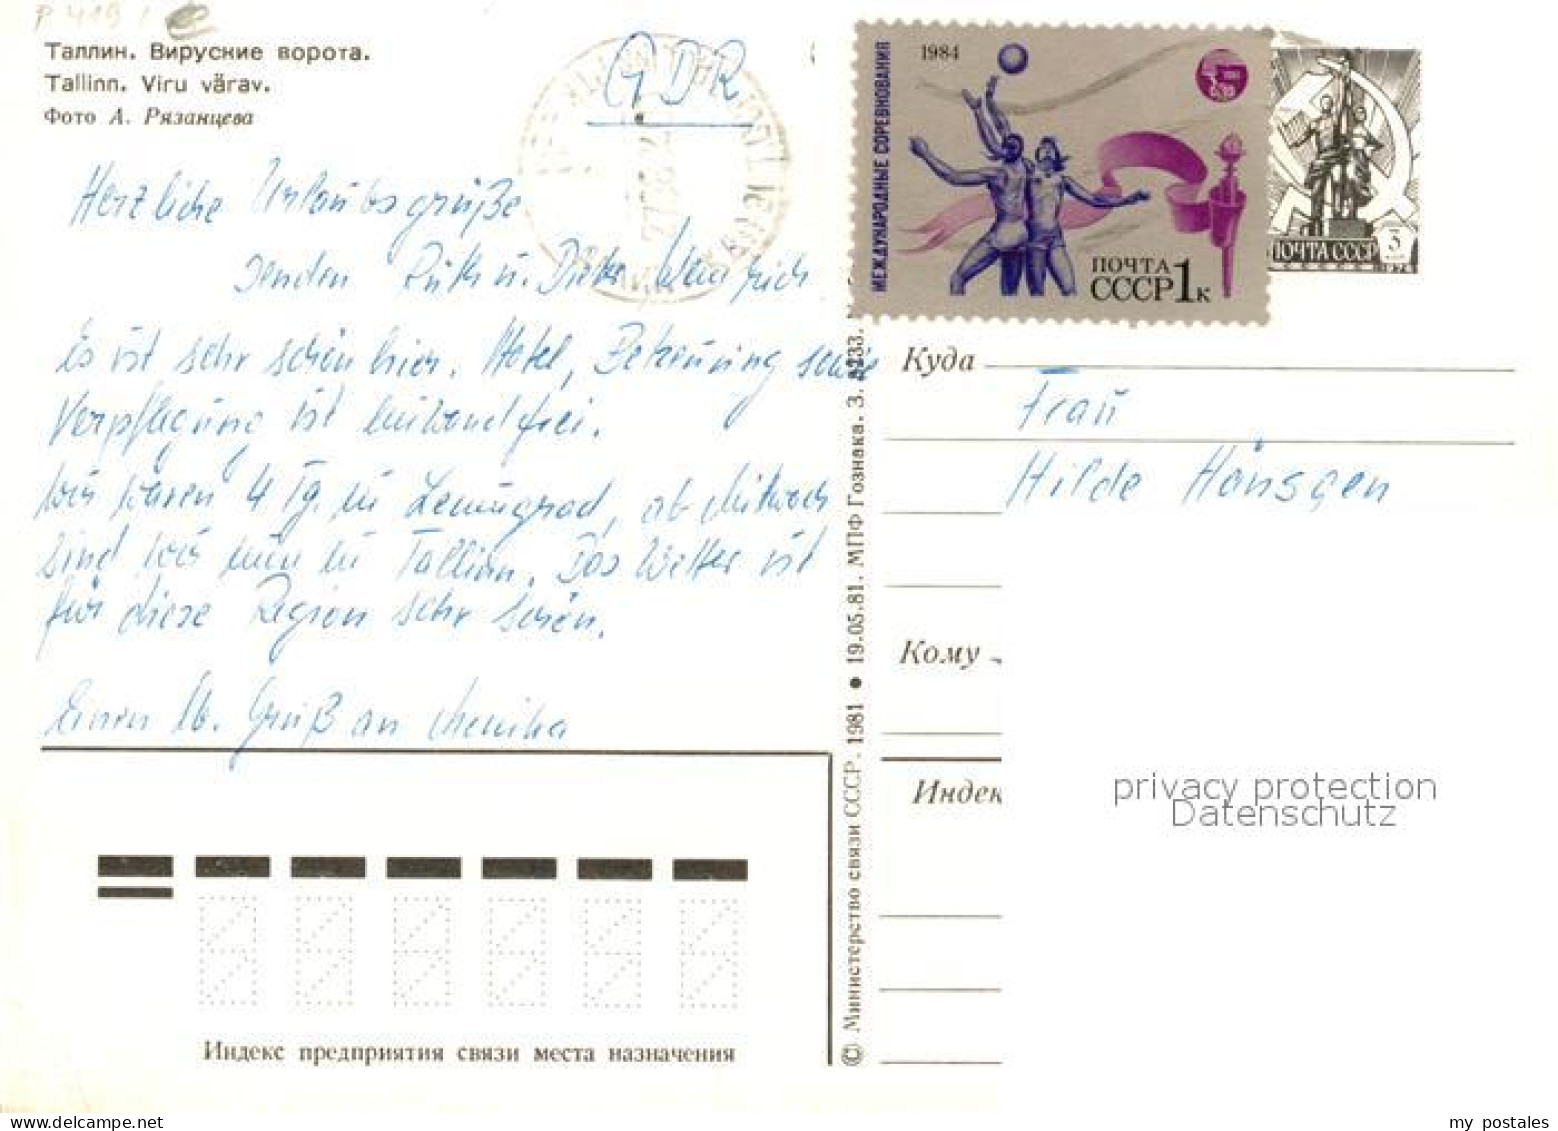 Таллин. Вируские ворота.
Tallinn. Viru värav.
Фото А. Рязанцева
GDR
Herzliche Urlaubsgrüße
senden Ruth u. Dieter
Es ist sehr schön hier. Hotel, Betreuung sowie
Verpflegung ist einwandfrei.
Wir waren 4 Tg. in Leningrad, ab Mittwoch
sind wir nun in Tallinn. Das Wetter ist
für diese Region sehr schön.
Einen lb. Gruß an Monika
Индекс предприятия связи места назначения
© Министерство связи СССР. 1981 ● 19.05.81. МПФ Гознака. З.
1984
МЕЖДУНАРОДНЫЕ СОРЕВНОВАНИЯ
ПОЧТА
СССР 1к
ПОЧТА СССР 3
Куда
Frau
Hilde Hänsgen
Кому
Индек
privacy protection
Datenschutz
my postales